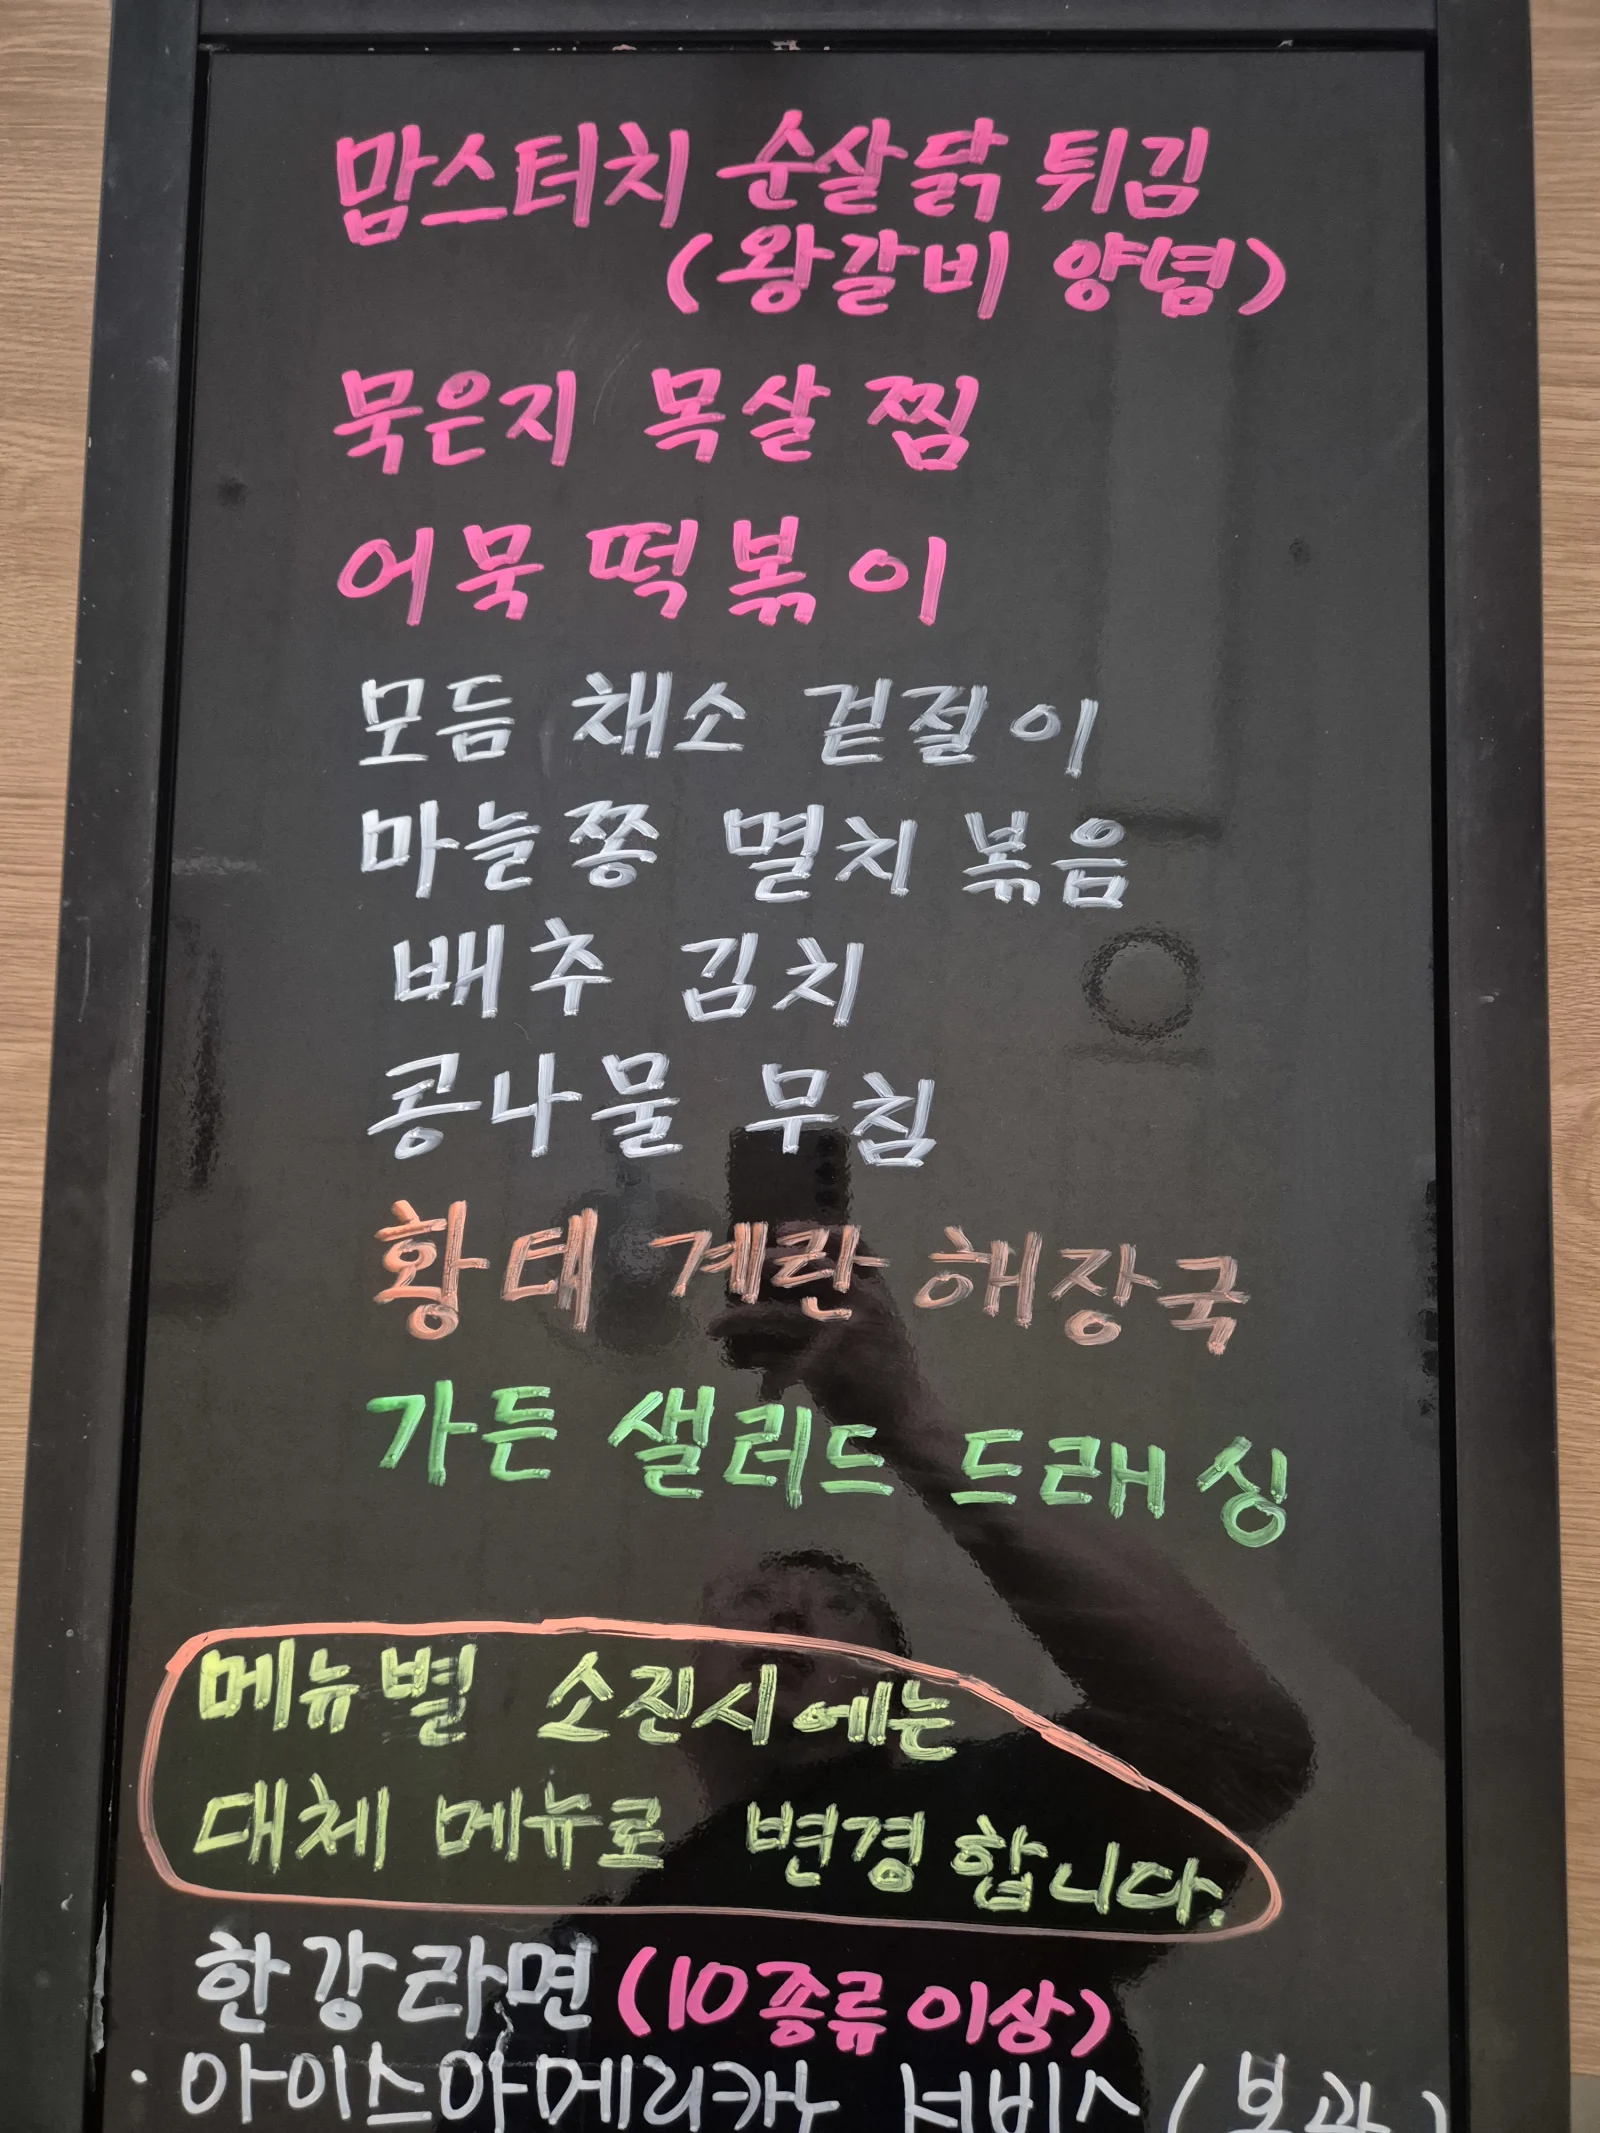 맘스터치 순살닭 튀김
(왕갈비 양념)
묵은지 목살 찜
어묵 떡볶이
모듬 채소 겉절이
마늘쫑 멸치 볶음
배추 김치
콩나물 무침
황태 계란 해장국
가든 샐러드 드래싱
메뉴별 소진시에는
대체 메뉴로 변경합니다.
한강라면 (10종류이상)
· 아이스아메리카노 서비스 (